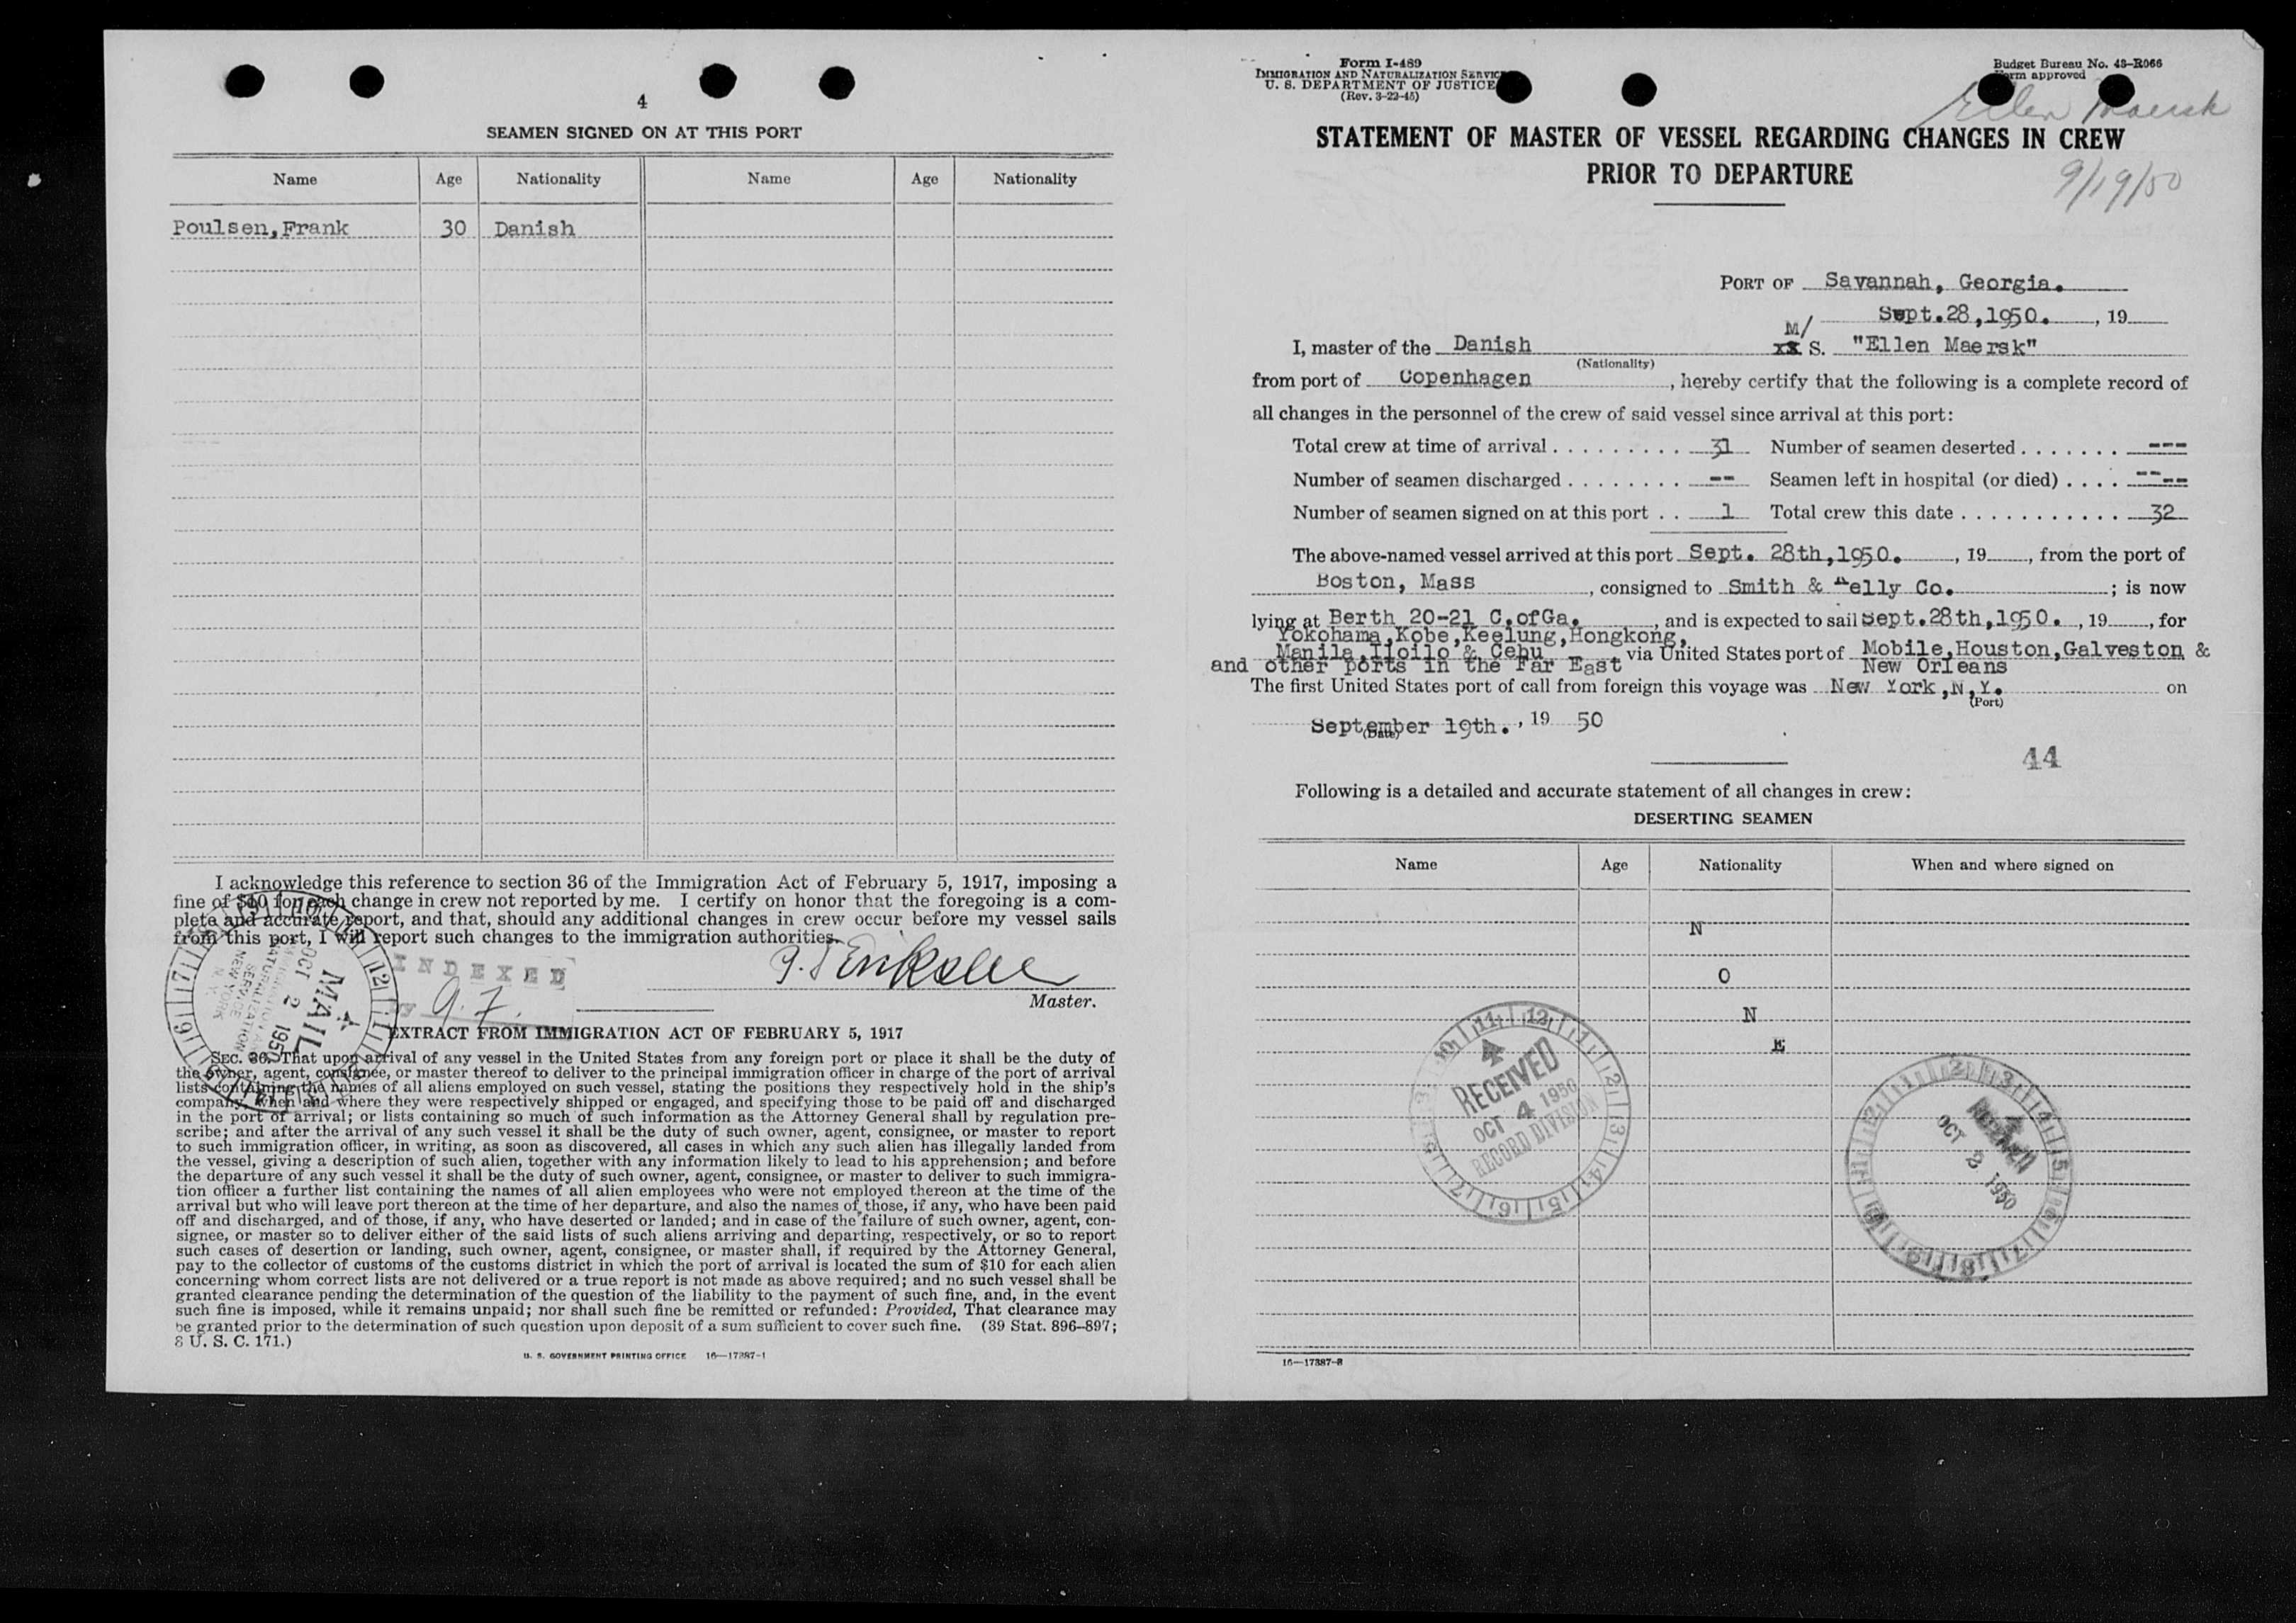 4
SEAMEN SIGNED ON AT THIS PORT
Name Age Nationality Name Age Nationality
Poulsen, Frank 30 Danish
I acknowledge this reference to section 36 of the Immigration Act of February 5, 1917, imposing a
fine of $10 for each change in crew not reported by me. I certify on honor that the foregoing is a com-
plete and accurate report, and that, should any additional changes in crew occur before my vessel sails
from this port, I will report such changes to the immigration authorities.
Master.
INDEXED
MAIL
OCT 2 1950
NATURALIZATION
SERVICE
NEW YORK
N. Y.
EXTRACT FROM IMMIGRATION ACT OF FEBRUARY 5, 1917
SEC. 36. That upon arrival of any vessel in the United States from any foreign port or place it shall be the duty of
the owner, agent, consignee, or master thereof to deliver to the principal immigration officer in charge of the port of arrival
lists containing the names of all aliens employed on such vessel, stating the positions they respectively hold in the ship's
company, when and where they were respectively shipped or engaged, and specifying those to be paid off and discharged
in the port of arrival; or lists containing so much of such information as the Attorney General shall by regulation pre-
scribe; and after the arrival of any such vessel it shall be the duty of such owner, agent, consignee, or master to report
to such immigration officer, in writing, as soon as discovered, all cases in which any such alien has illegally landed from
the vessel, giving a description of such alien, together with any information likely to lead to his apprehension; and before
the departure of any such vessel it shall be the duty of such owner, agent, consignee, or master to deliver to such immigra-
tion officer a further list containing the names of all alien employees who were not employed thereon at the time of the
arrival but who will leave port thereon at the time of her departure, and also the names of those, if any, who have been paid
off and discharged, and of those, if any, who have deserted or landed; and in case of the failure of such owner, agent, con-
signee, or master so to deliver either of the said lists of such aliens arriving and departing, respectively, or so to report
such cases of desertion or landing, such owner, agent, consignee, or master shall, if required by the Attorney General,
pay to the collector of customs of the customs district in which the port of arrival is located the sum of $10 for each alien
concerning whom correct lists are not delivered or a true report is not made as above required; and no such vessel shall be
granted clearance pending the determination of the question of the liability to the payment of such fine, and, in the event
such fine is imposed, while it remains unpaid; nor shall such fine be remitted or refunded: Provided, That clearance may
be granted prior to the determination of such question upon deposit of a sum sufficient to cover such fine. (39 Stat. 896–897;
8 U. S. C. 171.)
U. S. GOVERNMENT PRINTING OFFICE 16—17387-1
Form I-489
IMMIGRATION AND NATURALIZATION SERVICE
U. S. DEPARTMENT OF JUSTICE
(Rev. 3-22-45)
Budget Bureau No. 43-R066
Form approved
Ellen Maersk
STATEMENT OF MASTER OF VESSEL REGARDING CHANGES IN CREW
PRIOR TO DEPARTURE
9/19/50
PORT OF Savannah, Georgia.
Sept.28,1950. , 19
I, master of the Danish M/ xx S. "Ellen Maersk"
(Nationality)
from port of Copenhagen , hereby certify that the following is a complete record of
all changes in the personnel of the crew of said vessel since arrival at this port:
Total crew at time of arrival . . . . . . . . . 31 Number of seamen deserted . . . . . . . ---
Number of seamen discharged . . . . . . . . -- Seamen left in hospital (or died) . . . . ----
Number of seamen signed on at this port . . 1 Total crew this date . . . . . . . . . . . . 32
The above-named vessel arrived at this port Sept. 28th,1950. , 19 , from the port of
Boston, Mass , consigned to Smith & Kelly Co. ; is now
lying at Berth 20-21 C.ofGa. , and is expected to sail Sept.28th,1950. , 19 , for
Yokohama,Kobe,Keelung,Hongkong,
Manila,Iloilo & Cebu via United States port of Mobile,Houston,Galveston &
and other ports in the Far East New Orleans
The first United States port of call from foreign this voyage was New York,N.Y. on
(Port)
September 19th. , 19 50
(Date)
44
Following is a detailed and accurate statement of all changes in crew:
DESERTING SEAMEN
Name Age Nationality When and where signed on
N
O
N
E
RECEIVED
OCT 4 1950
RECORD DIVISION
RECEIVED
OCT 2 1950
16—17387-3